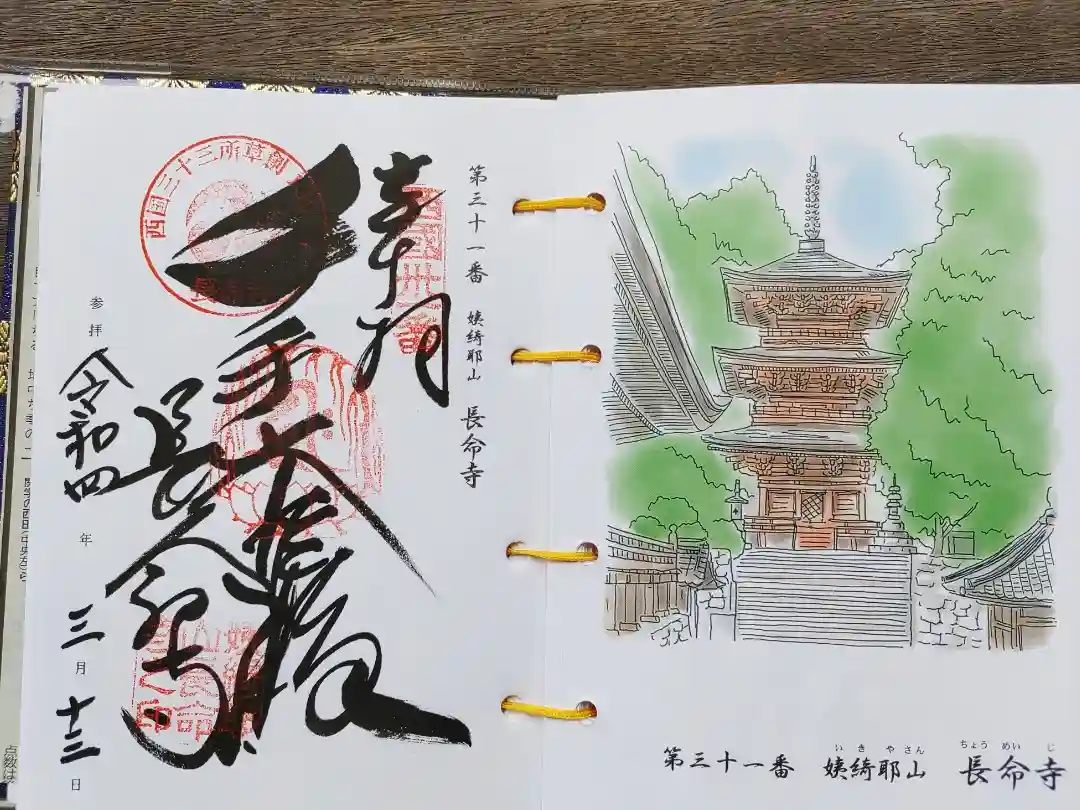 第三十一番 姨綺耶山 長命寺
奉拝
西国卅一番
西国三十三所草創
千手大悲殿
長命寺
参拝 令和四年 三月 十三日
点数は
いきやさん ちょうめいじ
第三十一番 姨綺耶山 長命寺